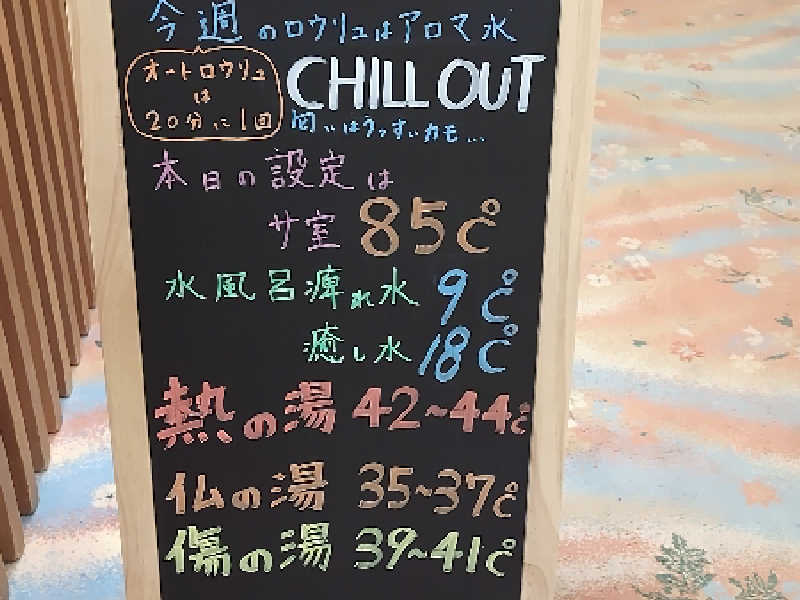 今週のロウリュはアロマ水
オートロウリュ
は
20分に1回
CHILL OUT
はうっすぃカモ…
本日の設定は
サ室 85℃
水風呂痺れ水 9℃
癒し水 18℃
熱の湯 42~44℃
仏の湯 35~37℃
傷の湯 39~41℃